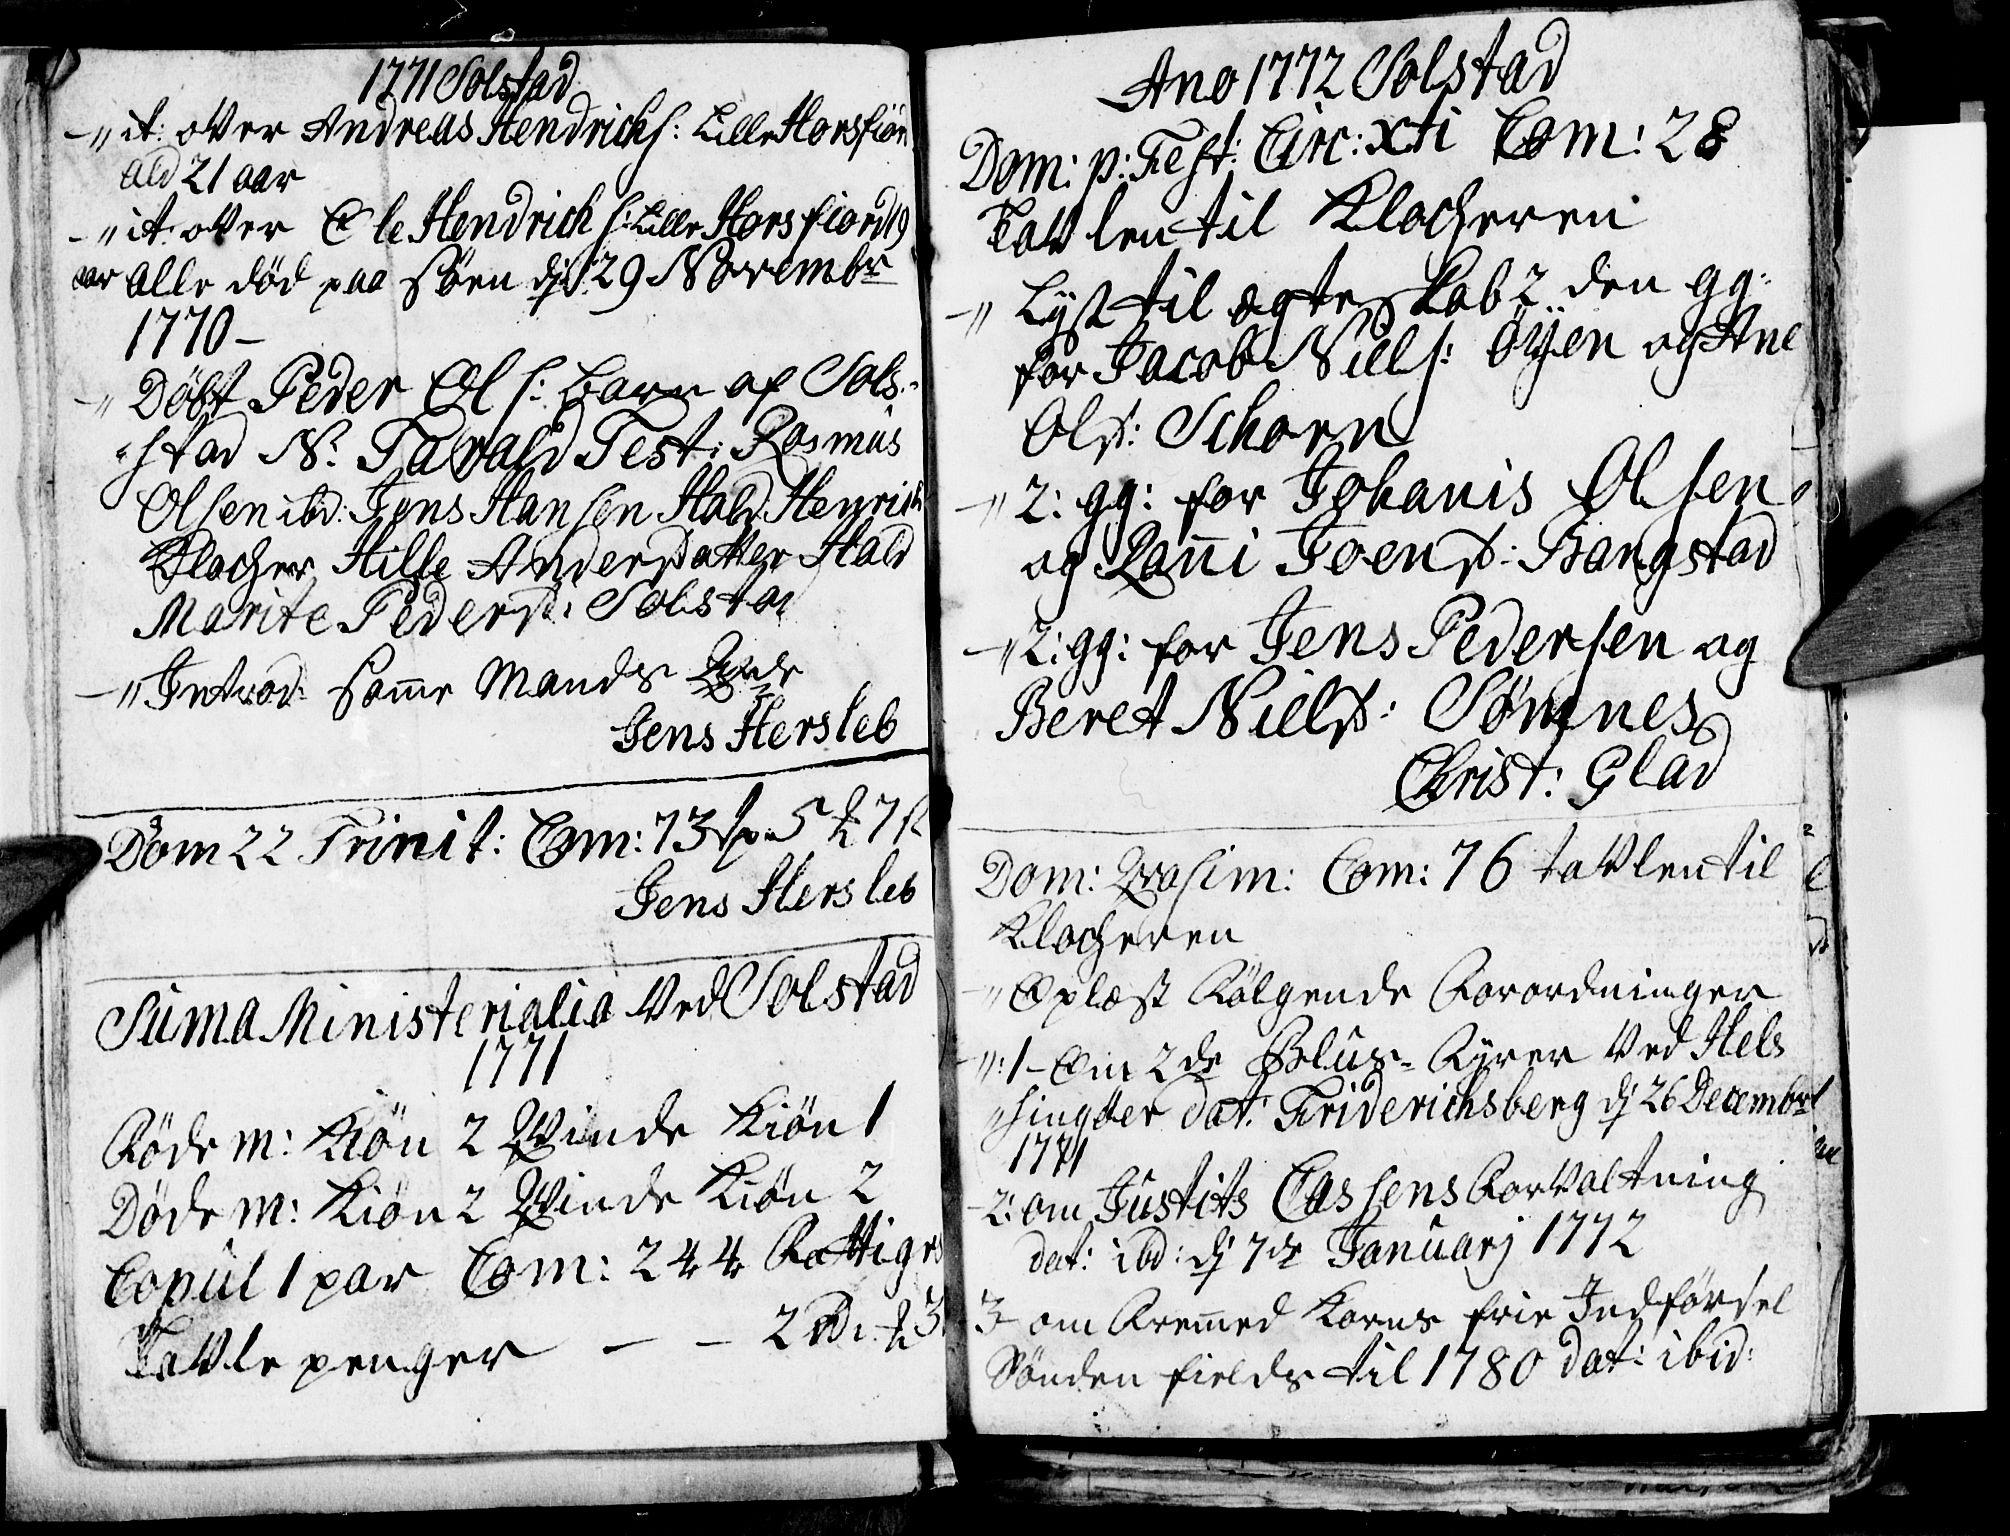 1771 Solstad
-" it: over Andreas Hendrichs: Lille Horsfiord
ald 21 aar
-" it: over Ole Hendrichs: Lille Horsfiord 19
aar alle død paa Søen dj 29 Novembr
1770 -
-" Døbt Peder Ols: barn af Sols-
-stad N: Tarald Test: Rasmus
Olsen ibd: Jens Hansen Hald Henrich
Klocher Hille Andersdatter Hald
Marite Pedersd: Solstad
-" Introd: samme Mands
Jens Hersleb
Dom 22 Trinit: Com: 73 5 7
Jens Hersleb
Suma Ministerialia ved Solstad
1771
Føde M: Kiön 2 Qvinde Kiön 1
Døde M: Kiön 2 Qvinde Kiön 2
Copul 1 par Com: 244 Fattiges
Tavle penger - - 2 rd: 3
Ano 1772 Solstad
Dom: p: Fest: Circ: xti Com: 28
Tavlen til Klocheren
-" Lyst til ægteskab 2 den gg:
for Jacob Niels: Öyen og Ane
Olsd: Schorn
-" 2: gg: for Johanis Olsen
og Rani Joensd: Bangstad
-" 2: gg: for Jens Pedersen og
Beret Nielsd: Sømnes
Christ: Glad
Dom: Qvasim: Com: 76 tavlen til
Klocheren
-" Oplæst følgende Forordninger
-": 1 - Om 2de Blus-Fyrer ved Hel-
-singøer dat: Friderichsberg dj 26 Decembr
1771
2: om Justits Cassens Forvaltning
dat: ibd: dj 7de Januarj 1772
3 om fremmed Korns frie Indførsel
Sønden fields til 1780 dat: ibid: